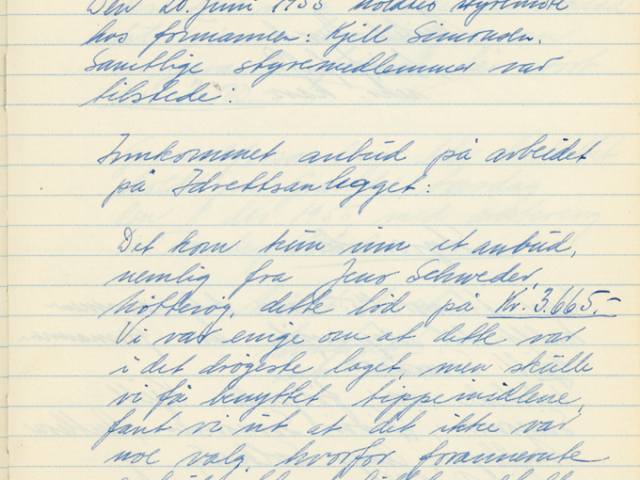 Den 20. Juni 1955 holdtes styremöte
hos formannen: Kjell Simonsen.
Samtlige styremedlemmer var
tilstede:
Innkommet anbud på arbeidet
på Idrettsanlegget:
Det kom kun inn et anbud,
nemlig fra Jens Schweder,
dette löd på Kr. 3.665.-
Vi var enige om at dette var
i det drögeste laget, men skulle
vi få benyttet tippemidlene,
fant vi ut at det ikke var
noe valg, hvorfor forannevnte